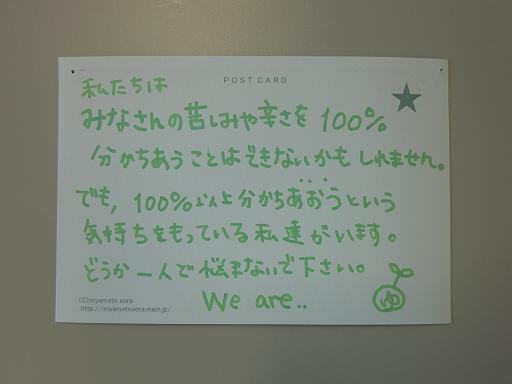 POST CARD
私たちは
みなさんの苦しみや辛さを 100%
分かちあうことはできないかもしれません。
でも, 100%以上分かちあおうという
気持ちをもっている私達がいます。
どうか一人で悩まないで下さい。
We are..
ゆ
(C)miyamoto sora
http://miyamotosora.main.jp/